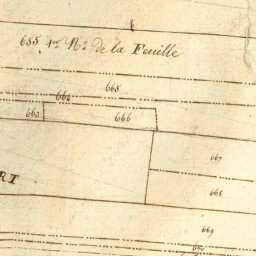 655 1er Nº de la Feuille
665
664
663 666
667
RT
668
669